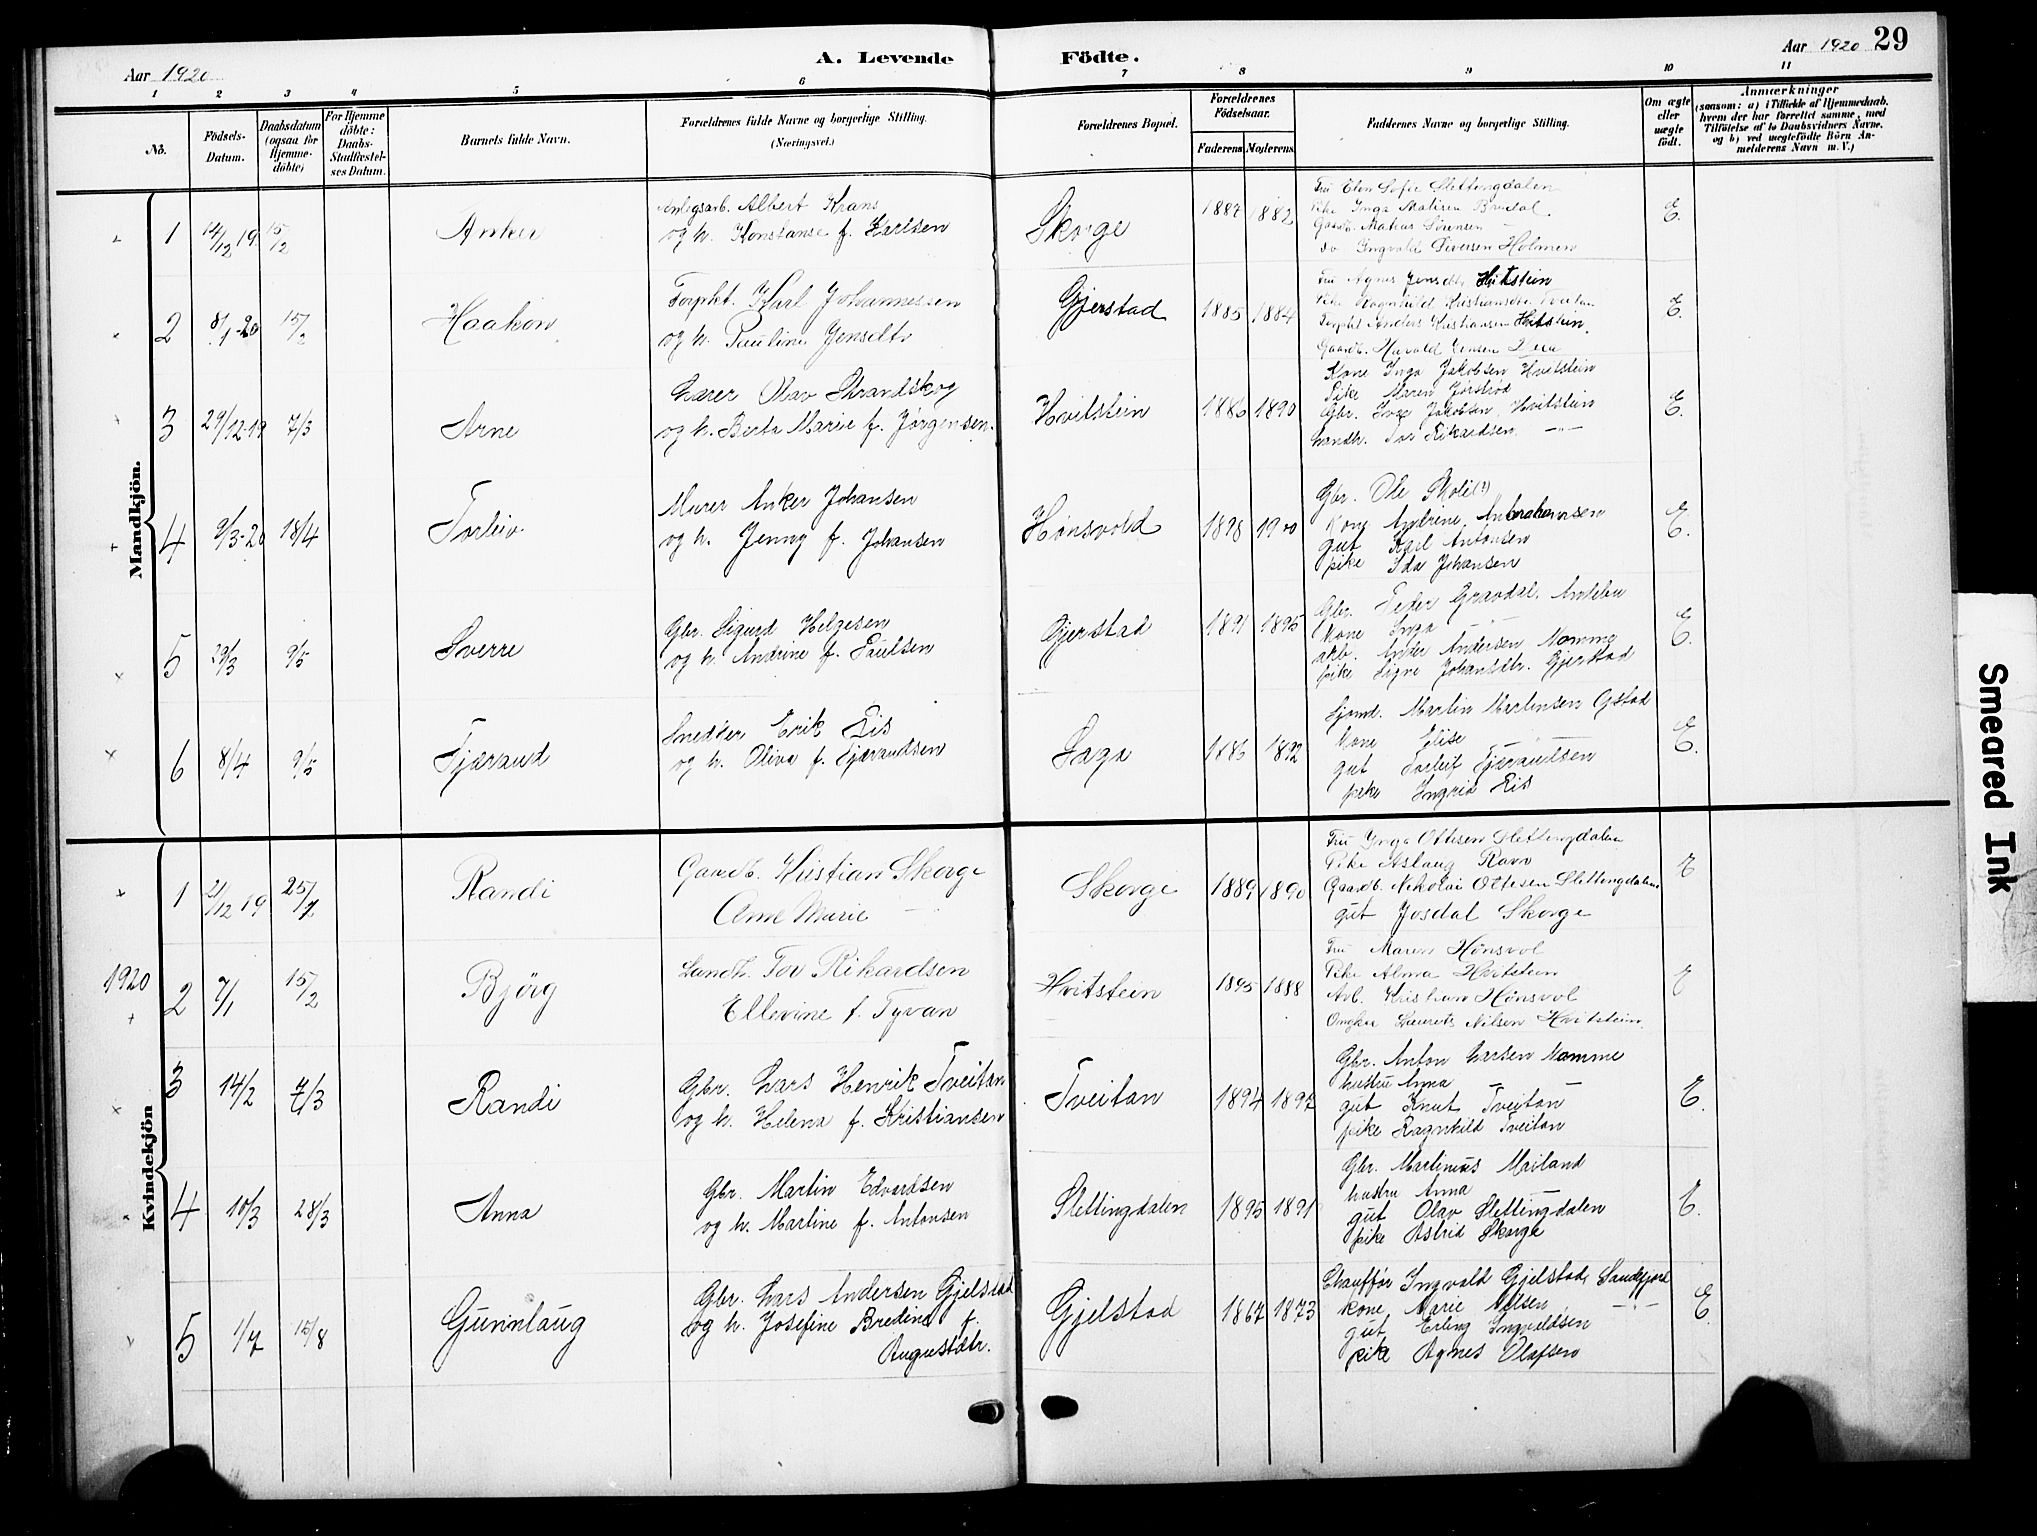 29
Aar 1920
A. Levende
Födte.
Aar 1920
1 2 3 4 5 6 7 8 9 10 11
No.
Födsels-
Datum.
Daabsdatum
(ogsaa for
Hjemme-
döbte)
For Hjemme
döbte:
Daabs-
Stadfæstel-
ses Datum.
Barnets fulde Navn.
Forældrenes fulde Navne og borgerlige Stilling.
(Næringsvei.)
Forældrenes Bopæl.
Forældrenes
Födselsaar.
Faderens Moderens
Faddernes Navne og borgerlige Stilling.
Om ægte
eller
uægte
födt.
Anmærkninger
(saasom: a) i Tilfælde af Hjemmedaab.
hvem der har forrettet samme, med
Tilföielse af to Daabsvidners Navne.
og b) ved uægtefödte Börn An-
melderens Navn m. V.)
Mandkjön.
1 14/12 19 15/2 Anker
Anlegsarb. Albert Krans
og h. Konstanse f. Karlsen
Skorge 1887 1882
Fru Elen Sofie Slettingdalen
Pike Inga Matisen
Gaardb. Sörensen
do Ingvald Iversen Holmen
E.
2 8/1-20 15/2 Haakon
Forpkt. Karl Johannessen
og h. Pauline Jensdtr
Gjerstad 1885 1884
Fru Agnes Jensdtr Hvitstein
Pike Ragnhild Kristiansdtr Tveitan
Forpkt Anders Kristiansen Hvitstein.
Gaardb. Harald Jensen
E.
3 29/12-19 7/3 Arne
Lærer Olav Strandskog
og h. Berta Marie f. Jørgensen.
Hvitstein 1886 1890
Kone Inga Jakobsen Hvitstein
Pike Maren
Gbr. Jakobsen, Hvitstein
Landh. Tor Rikardsen —"—
E.
4 9/3-20 18/4 Torleiv
Murer Anker Johansen
og h. Jenny f. Johansen
Hønsvold 1898 1900
Gbr. Ole Skoli(?)
Kone Andrine Anbrahamsen
gut Karl Antonsen
pike Ida Johansen
E.
5 29/3 9/5 Sverre
Gbr. Sigurd Helgesen
og h. Andrine f. Paulsen
Gjerstad 1891 1895
Gbr. Peder Gravdal, Andebu
Kone Inga —"—
arb. Andersen Namme
pike Signe Johansdtr. Gjerstad
E.
6 8/4 9/5 Tjærand
Snedker Erik Eis
og h. Oliva f. Tjærandsen
Saga 1886 1892
Sjømd. Martin Martinsen
Kone Elise —
gut Torleif Tjærandsen
pike Ingrid Eis
E.
1920
Kvindekjön
1 21/12 19 25/7 Randi
Gaardb. Kristian Skorge
Ane Marie —"—
Skorge 1889 1890
Fru Inga Ottesen Slettingdalen
Pike Aslaug Ravn
Gaardb. Nikolai Ottesen Slettingdalen
gut Josdal Skorge
E
2 7/1 15/2 Bjørg
Landh. Tor Rikardsen
Ellevine f. Tyvan
Hvitstein 1895 1888
Fru Maren Hønsvol
Pike Alma Hvitstein
Arb. Kristian Hønsvol
Ungkar Laurits Nilsen Hvitstein.
E
3 14/2 7/3 Randi
Gbr. Lars Henrik Tveitan
og h. Helena f. Kristiansen
Tveitan 1894 1897
Gbr. Anton Larsen Namme
hustru Anna — —
gut Knut Tveitan
pike Ragnhild Tveitan
E.
4 10/3 28/3 Anna
Gbr. Martin Edvardsen
og h. Martine f. Antonsen
Slettingdalen 1895 1891
Gbr. Martinius Mailand
hustru Anna —
gut Olav Slettingdalen
pike Astrid Skorge
E.
5 1/7 15/8 Gunnlaug
Gbr. Lars Andersen Gjelstad
og h. Josefine Bredine f.
Augustdtr.
Gjelstad 1867 1873
Chauffør Ingvald Gjelstad, Sandefjord
Kone Marie Nilsen —"—
gut Erling Ingvaldsen
pike Agnes Olafsen
E.
Smeared Ink